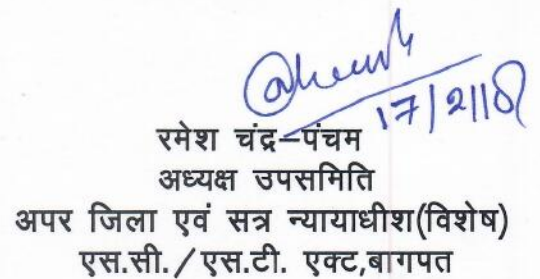 17/2/18
रमेश चंद्र–पंचम
अध्यक्ष उपसमिति
अपर जिला एवं सत्र न्यायाधीश(विशेष)
एस.सी./एस.टी. एक्ट,बागपत